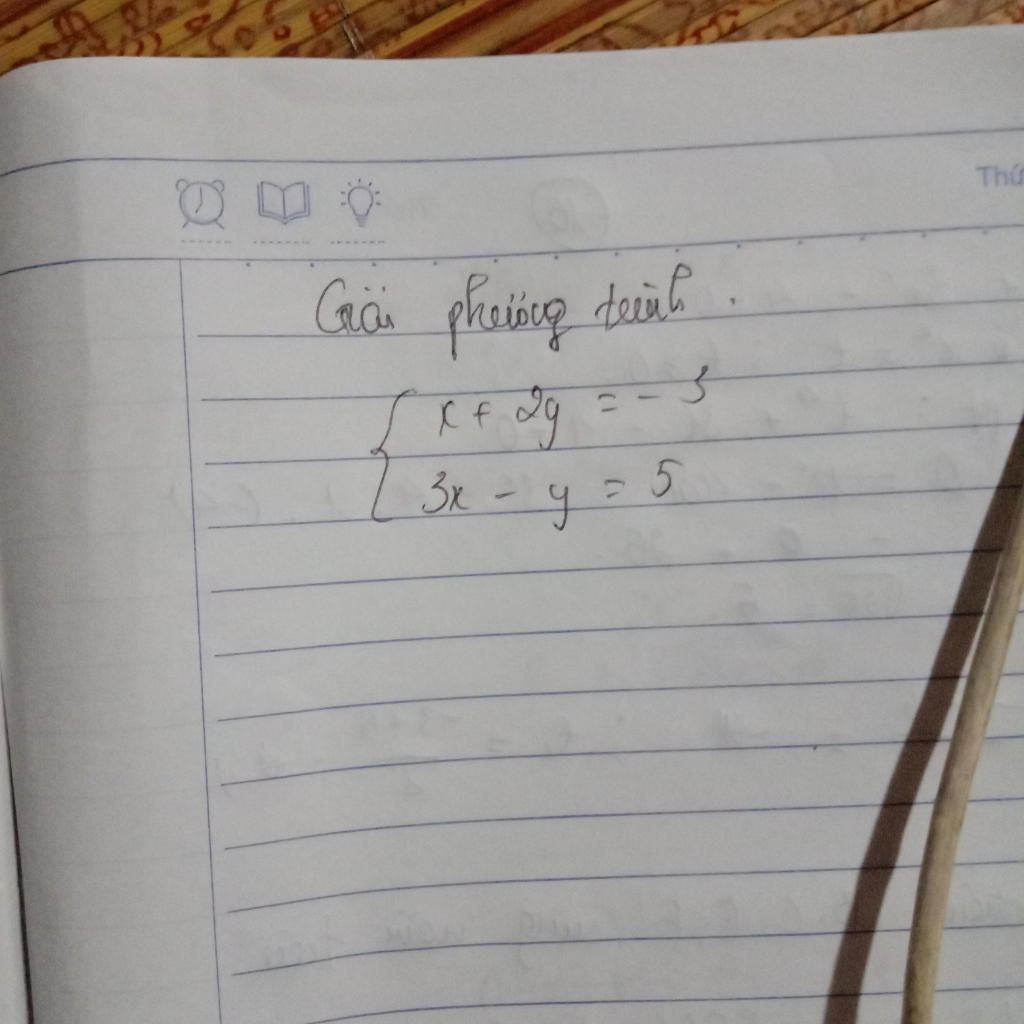 Thứ
Giải phương trình .
x + 2y = - 3
3x - y = 5